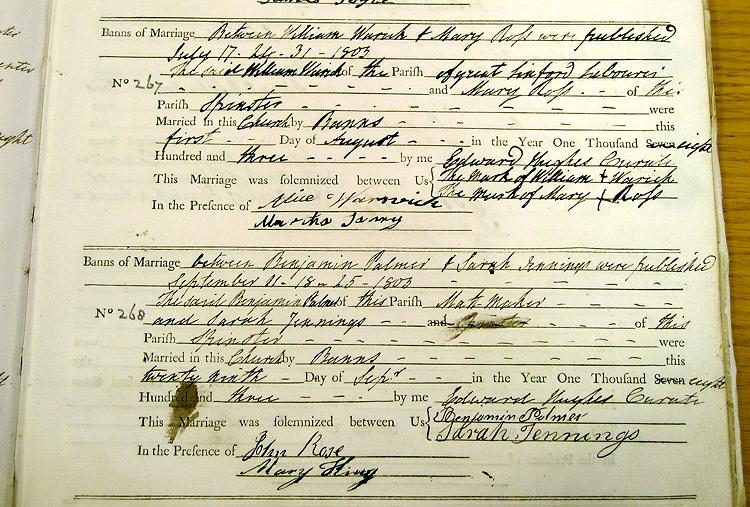 Banns of Marriage Between William Warich & Mary Ross were published
July 17 - 24 - 31 - 1803
No 267 The said William Warich of the Parish of great
and Mary Ross of this
Parish Spinster were
Married in this Church by Banns this
first Day of August in the Year One Thousand Seven eight
Hundred and three by me Edward Hughes Curate
This Marriage was solemnized between Us The Mark of William + Warich
The Mark of Mary Ross
In the Presence of Alice Warwick
Martha
Banns of Marriage between Benjamin Palmer & Sarah Jennings were published
September 11 - 18 - 25 - 1803
No 268 The said Benjamin Palmer of this Parish Mat Maker
and Sarah Jennings and of this
Parish Spinster were
Married in this Church by Banns this
twenty ninth Day of Sepr in the Year One Thousand Seven eight
Hundred and three by me Edward Hughes Curate
This Marriage was solemnized between Us Benjamin Palmer
Sarah Jennings
In the Presence of John Rose
Mary King